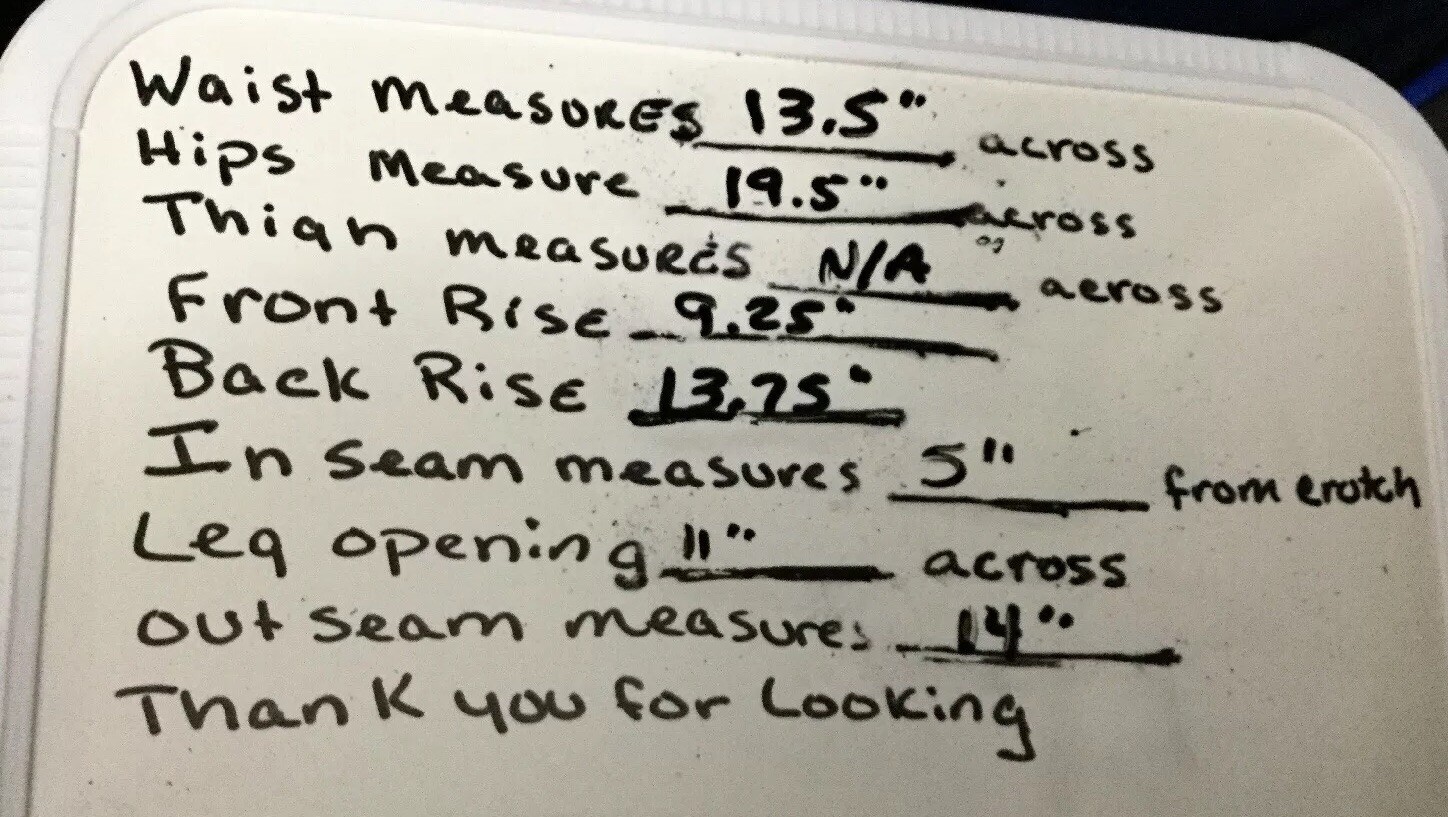 Waist measures 13.5" across
Hips measure 19.5" across
Thigh measures N/A across
Front Rise 9.25"
Back Rise 13.75"
In seam measures 5" from crotch
Leg opening 11" across
out seam measures 14"
Thank you for Looking